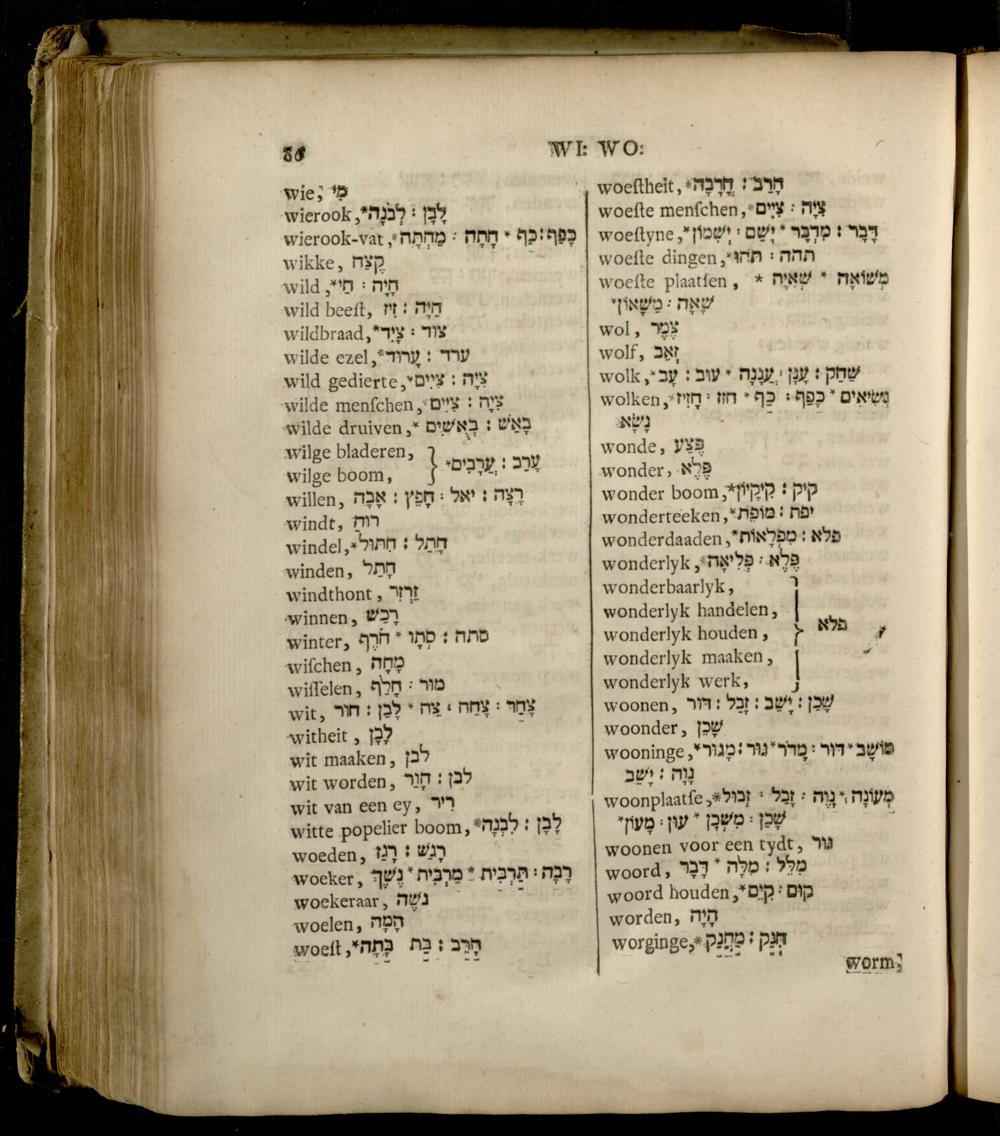 86
WI: WO:
wie, מִי
wierook,*לָבָן : לְבֹנָה
wierook-vat,*כָּפַף : כַּף * חָתָה : מַחְתָּה
wikke, קֶצַח
wild,*חָיָה : חַי
wild beeſt, חַיָּה : זִיז
wildbraad,*צוּד : צַיִד
wilde ezel,*ערד : עָרוֹד
wild gedierte,*צִיָּה : צִיִּים
wilde menſchen,*צִיָּה : צִיִּים
wilde druiven,*בָּאַשׁ : בְּאֻשִׁים
wilge bladeren,
wilge boom, } *עָרַב : עֲרָבִים
willen, רָצָה : יאל : חָפֵץ : אָבָה
windt, רוּחַ
windel,*חָתַל : חִתּוּל
winden, חָתַל
windthont, זַרְזִר
winnen, רָכַשׁ
winter, סתה : סְתָו * חֹרֶף
wiſchen, מָחָה
wiſſelen, מוּר : חָלַף
wit, צָחַר : צָחַח : צַח * לָבָן : חוּר
witheit, לָבָן
wit maaken, לבן
wit worden, לבן : חָוַר
wit van een ey, רִיר
witte popelier boom,*לָבָן : לִבְנֶה
woeden, רָגַשׁ : רָגַז
woeker, רָבָה : תַּרְבִּית * מַרְבִּית * נֶשֶׁךְ
woekeraar, נֹשֶׁה
woelen, הָמָה
woeſt,*חָרֵב : בַּת בָּתָה
woeſtheit,*חָרַב : חָרָבָה
woeſte menſchen,*צִיָּה : צִיִּים
woeſtyne,*דָּבַר : מִדְבָּר * יָשַׁם : יְשִׁמוֹן
woeſte dingen,*תהה : תֹּהוּ
woeſte plaatſen, * מְשׁוֹאָה * שְׁאִיָּה
*שָׁאָה : מַשָּׁאוֹן
wol, צֶמֶר
wolf, זְאֵב
wolk,*שַׁחַק : עָנָן : עֲנָנָה * עוּב : עָב
wolken,*נְשִׂיאִים * כָּפַף : כַּף * חזז : חָזִיז
נָשָׂא
wonde, פֶּצַע
wonder, פֶּלֶא
wonder boom,*קיק : קִיקָיוֹן
wonderteeken,*יפת : מוֹפֵת
wonderdaaden,*פלא : מִפְלָאוֹת
wonderlyk,*פֶּלֶא : פְּלִיאָה
wonderbaarlyk,
wonderlyk handelen,
wonderlyk houden, } פלא
wonderlyk maaken,
wonderlyk werk,
woonen, שָׁכַן : יָשַׁב : זָבַל : דּוּר
woonder, שָׁכֵן
wooninge,*תּוֹשָׁב * דּוּר : מָדֹר * גּוּר : מָגוּר
נָוָה : יָשַׁב
woonplaatſe,*מְעוֹנָה * נָוֶה : זָבַל : זְבוּל
*שָׁכַן : מִשְׁכָּן * עוּן : מָעוֹן
woonen voor een tydt, גּוּר
woord, מָלַל : מִלָּה * דָּבָר
woord houden,*קוּם : קִיֵּם
worden, הָיָה
worginge,*חָנַק : מַחֲנָק
worm,